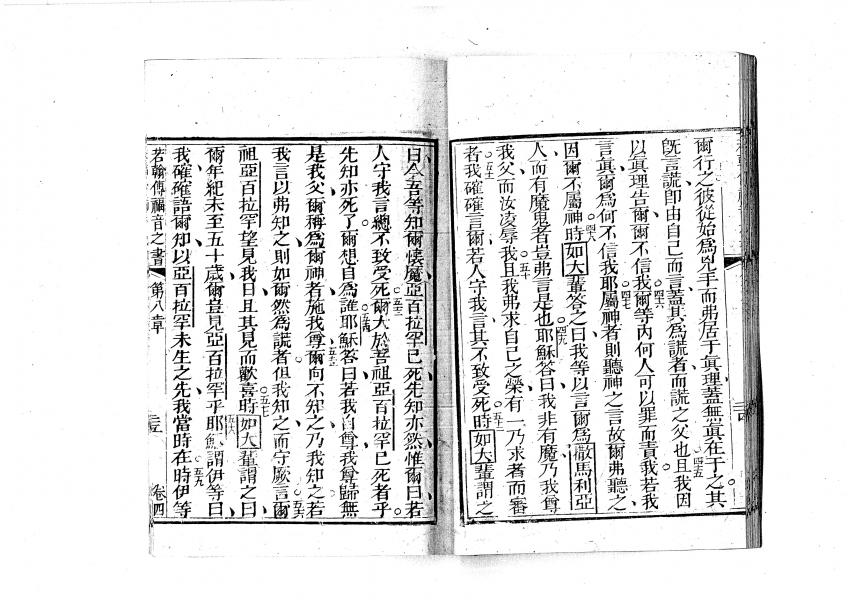 爾行之彼從始爲兇手而弗居于眞理蓋無眞在于之其
旣言謊卽由自己而言蓋其爲謊者而謊之父也且我因
以眞理告爾爾不信我爾等內何人可以罪而責我若我
言眞爾爲何不信我耶屬神者則聽神之言故爾弗聽之
因爾不屬神時如大輩答之曰我等以言爾爲撒馬利亞
人而有魔鬼者豈弗言是也耶穌答曰我非有魔乃我尊
我父而汝凌辱我且我弗求自己之榮有一乃求者而審
者我確確言爾若人守我言其不致受死時如大輩謂之
曰今吾等知爾懐魔亞百拉罕已死先知亦然惟爾曰若
人守我言總不致受死爾大於吾祖亞百拉罕已死者乎
先知亦死了爾想自爲誰耶穌答曰若我自尊我尊歸無
是我父爾稱爲爾神者施我尊爾向不知之乃我知之若
我言以弗知之則如爾然爲謊者但我知之而守厥言爾
祖亞百拉罕望見我日且其見而歡喜時如大輩謂之曰
爾年紀未至五十歲爾豈見亞百拉罕乎耶穌謂伊等曰
我確確語爾知以亞百拉罕未生之先我當時在時伊等
若翰傳福音之書 第八章 卷四